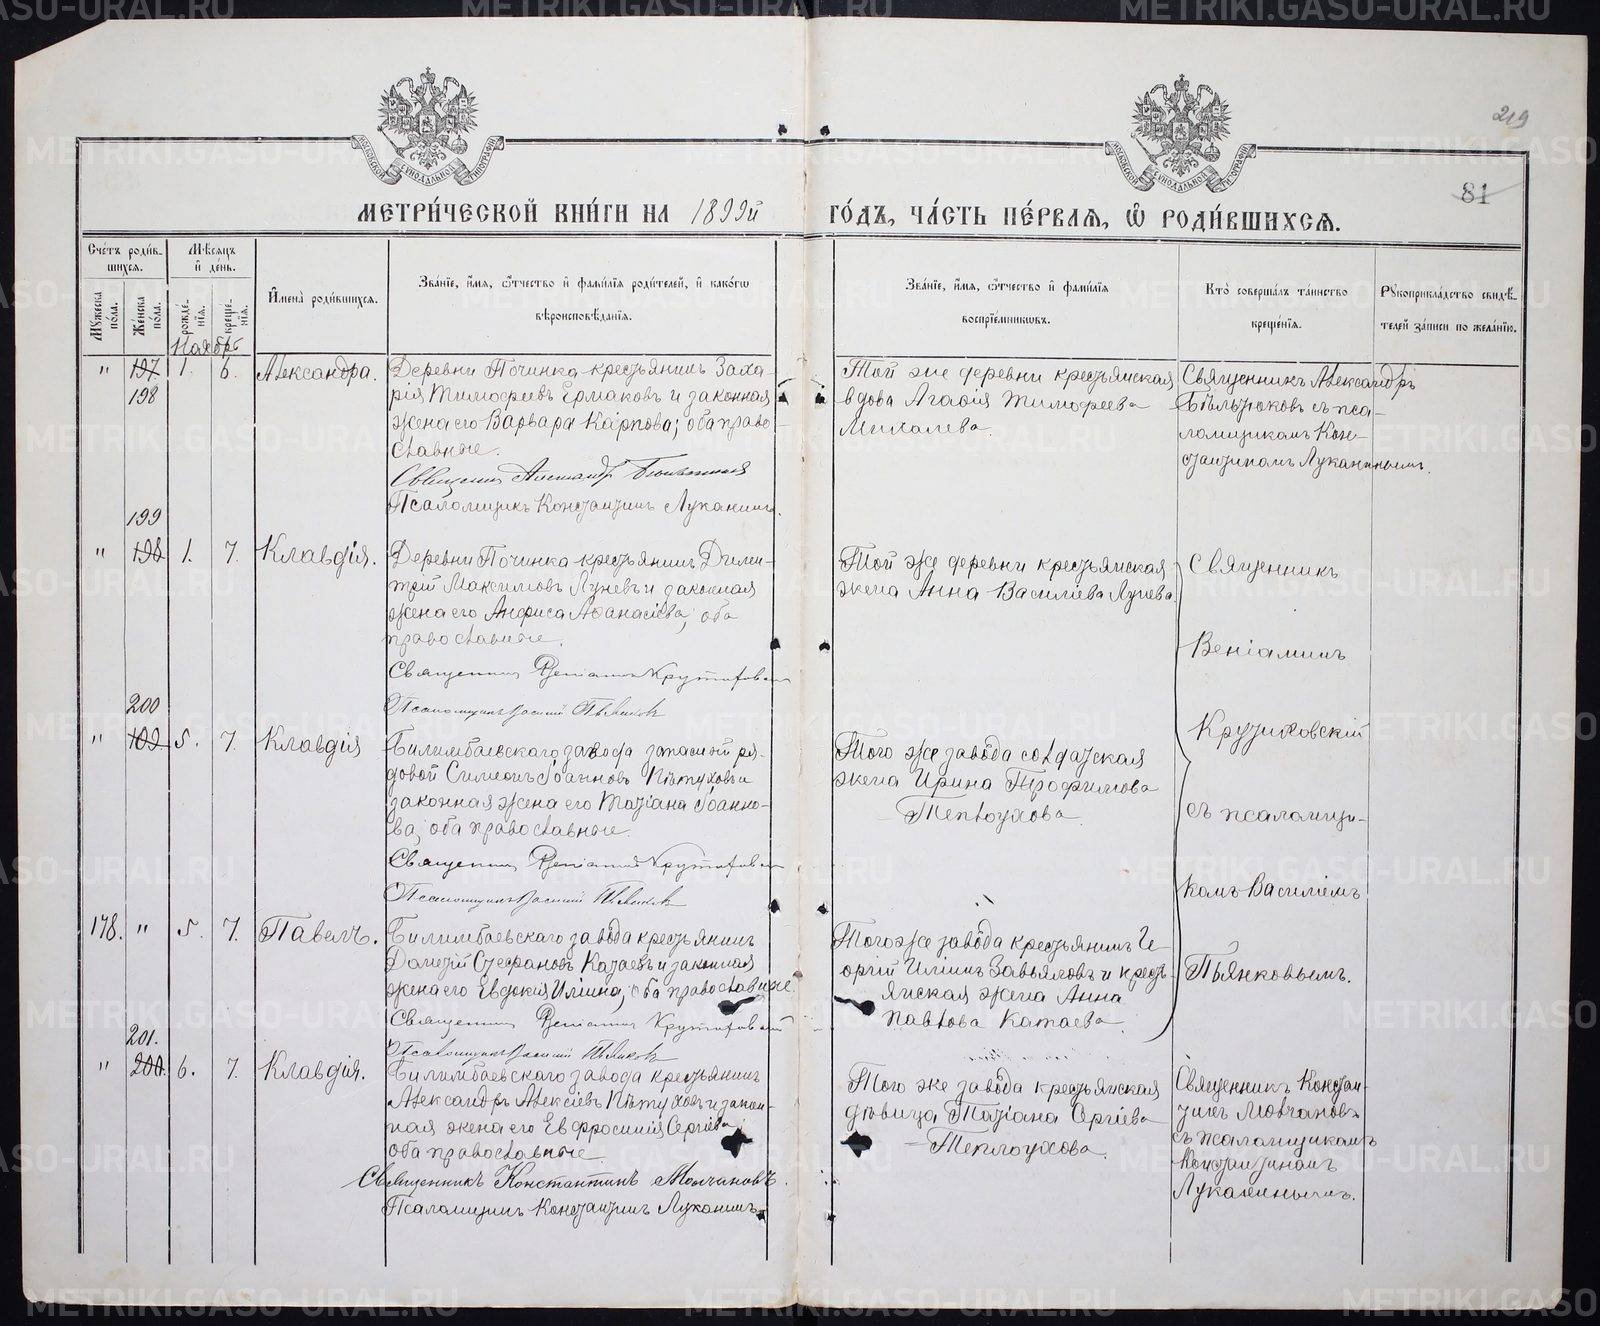 219
81
МОСКОВСКОЙ СѴНОДАЛЬНОЙ ТИПОГРАФИИ
МОСКОВСКОЙ СѴНОДАЛЬНОЙ ТИПОГРАФИИ
МЕТРИ́ЧЕСКОЙ КНИ́ГИ НА 1899й ГО́ДЪ, ЧА́СТЬ ПЕ́РВАЯ, Ѡ҆ РОДИ́ВШИХСѦ.
Сче́тъ роди́в-
шихсѧ.
Мꙋ́жеска по́ла.
Же́нска по́ла.
Мѣ́сѧцъ и҆ де́нь.
рожде́-
нїѧ.
креще́-
нїѧ.
И҆мена̀ роди́вшихсѧ.
Зва́нїе, и҆́мѧ, ѻ҆́тчество и҆ фами́лїѧ роди́телей, и҆ како́гѡ
вѣроисповѣ́данїѧ.
Зва́нїе, и҆́мѧ, ѻ҆́тчество и҆ фами́лїѧ
воспрїе́мникѡвъ.
Кто̀ соверша́лъ та́инство
креще́нїѧ.
Рꙋкоприкла́дство свидѣ́-
телей за́писи по жела́нїю.
Ноябрь
" 197 1. 6. Александра.
198
Деревни Починка крестьянинъ Заха-
рія Тимофеевъ Ермаковъ и законная
жена его Варвара Карпова; оба право-
славные.
Священникъ Александръ
Псаломщикъ Константинъ Луканинъ.
Той же деревни крестьянская
вдова Агафія Тимофеева
Михалева.
Священникъ Александръ
съ пса-
ломщикомъ Кон-
стантиномъ Луканинымъ.
199
" 198 1. 7. Клавдія.
Деревни Починка крестьянинъ Дими-
трій Максимовъ Луневъ и законная
жена его Анфиса Афанасіева; оба
православные.
Священникъ Веніаминъ Крутиховскій
Псаломщикъ Василій Пьянковъ
Той же деревни крестьянская
жена Анна Василіева Лунева.
Священникъ
Веніаминъ
Крутиховскій
съ псаломщи-
комъ Василіемъ
Пьянковымъ.
200
" 199 5. 7. Клавдія
Билимбаевскаго завода запасной ря-
довой Симеонъ Іоанновъ Пѣтуховъ и
законная жена его Татіана Іоанно-
ва; оба православные.
Священникъ Веніаминъ Крутиховскій
Псаломщикъ Василій Пьянковъ
Того же завода солдатская
жена Ирина Трофимова
Теплоухова.
178. " 5. 7. Павелъ.
Билимбаевскаго завода крестьянинъ
Стефановъ Катаевъ и законная
жена его Евдокія Иліина; оба православные.
Священникъ Веніаминъ Крутиховскій
Псаломщикъ Василій Пьянковъ
Того же завода крестьянинъ Ге-
оргій Иліинъ Завьяловъ и кресть-
янская жена Анна
Павлова Катаева.
201.
" 200. 6. 7. Клавдія.
Билимбаевскаго завода крестьянинъ
Александръ Алексіевъ Пѣтуховъ и закон-
ная жена его Евфросинія Сергіева
оба православные.
Священникъ Константинъ Молчановъ.
Псаломщикъ Константинъ Луканинъ.
Того же завода крестьянская
дѣвица Татіана Сергіева
Теплоухова.
Священникъ Констан-
тинъ Молчановъ
съ псаломщикомъ
Константиномъ
Луканинымъ.
METRIKI.GASO-URAL.RU